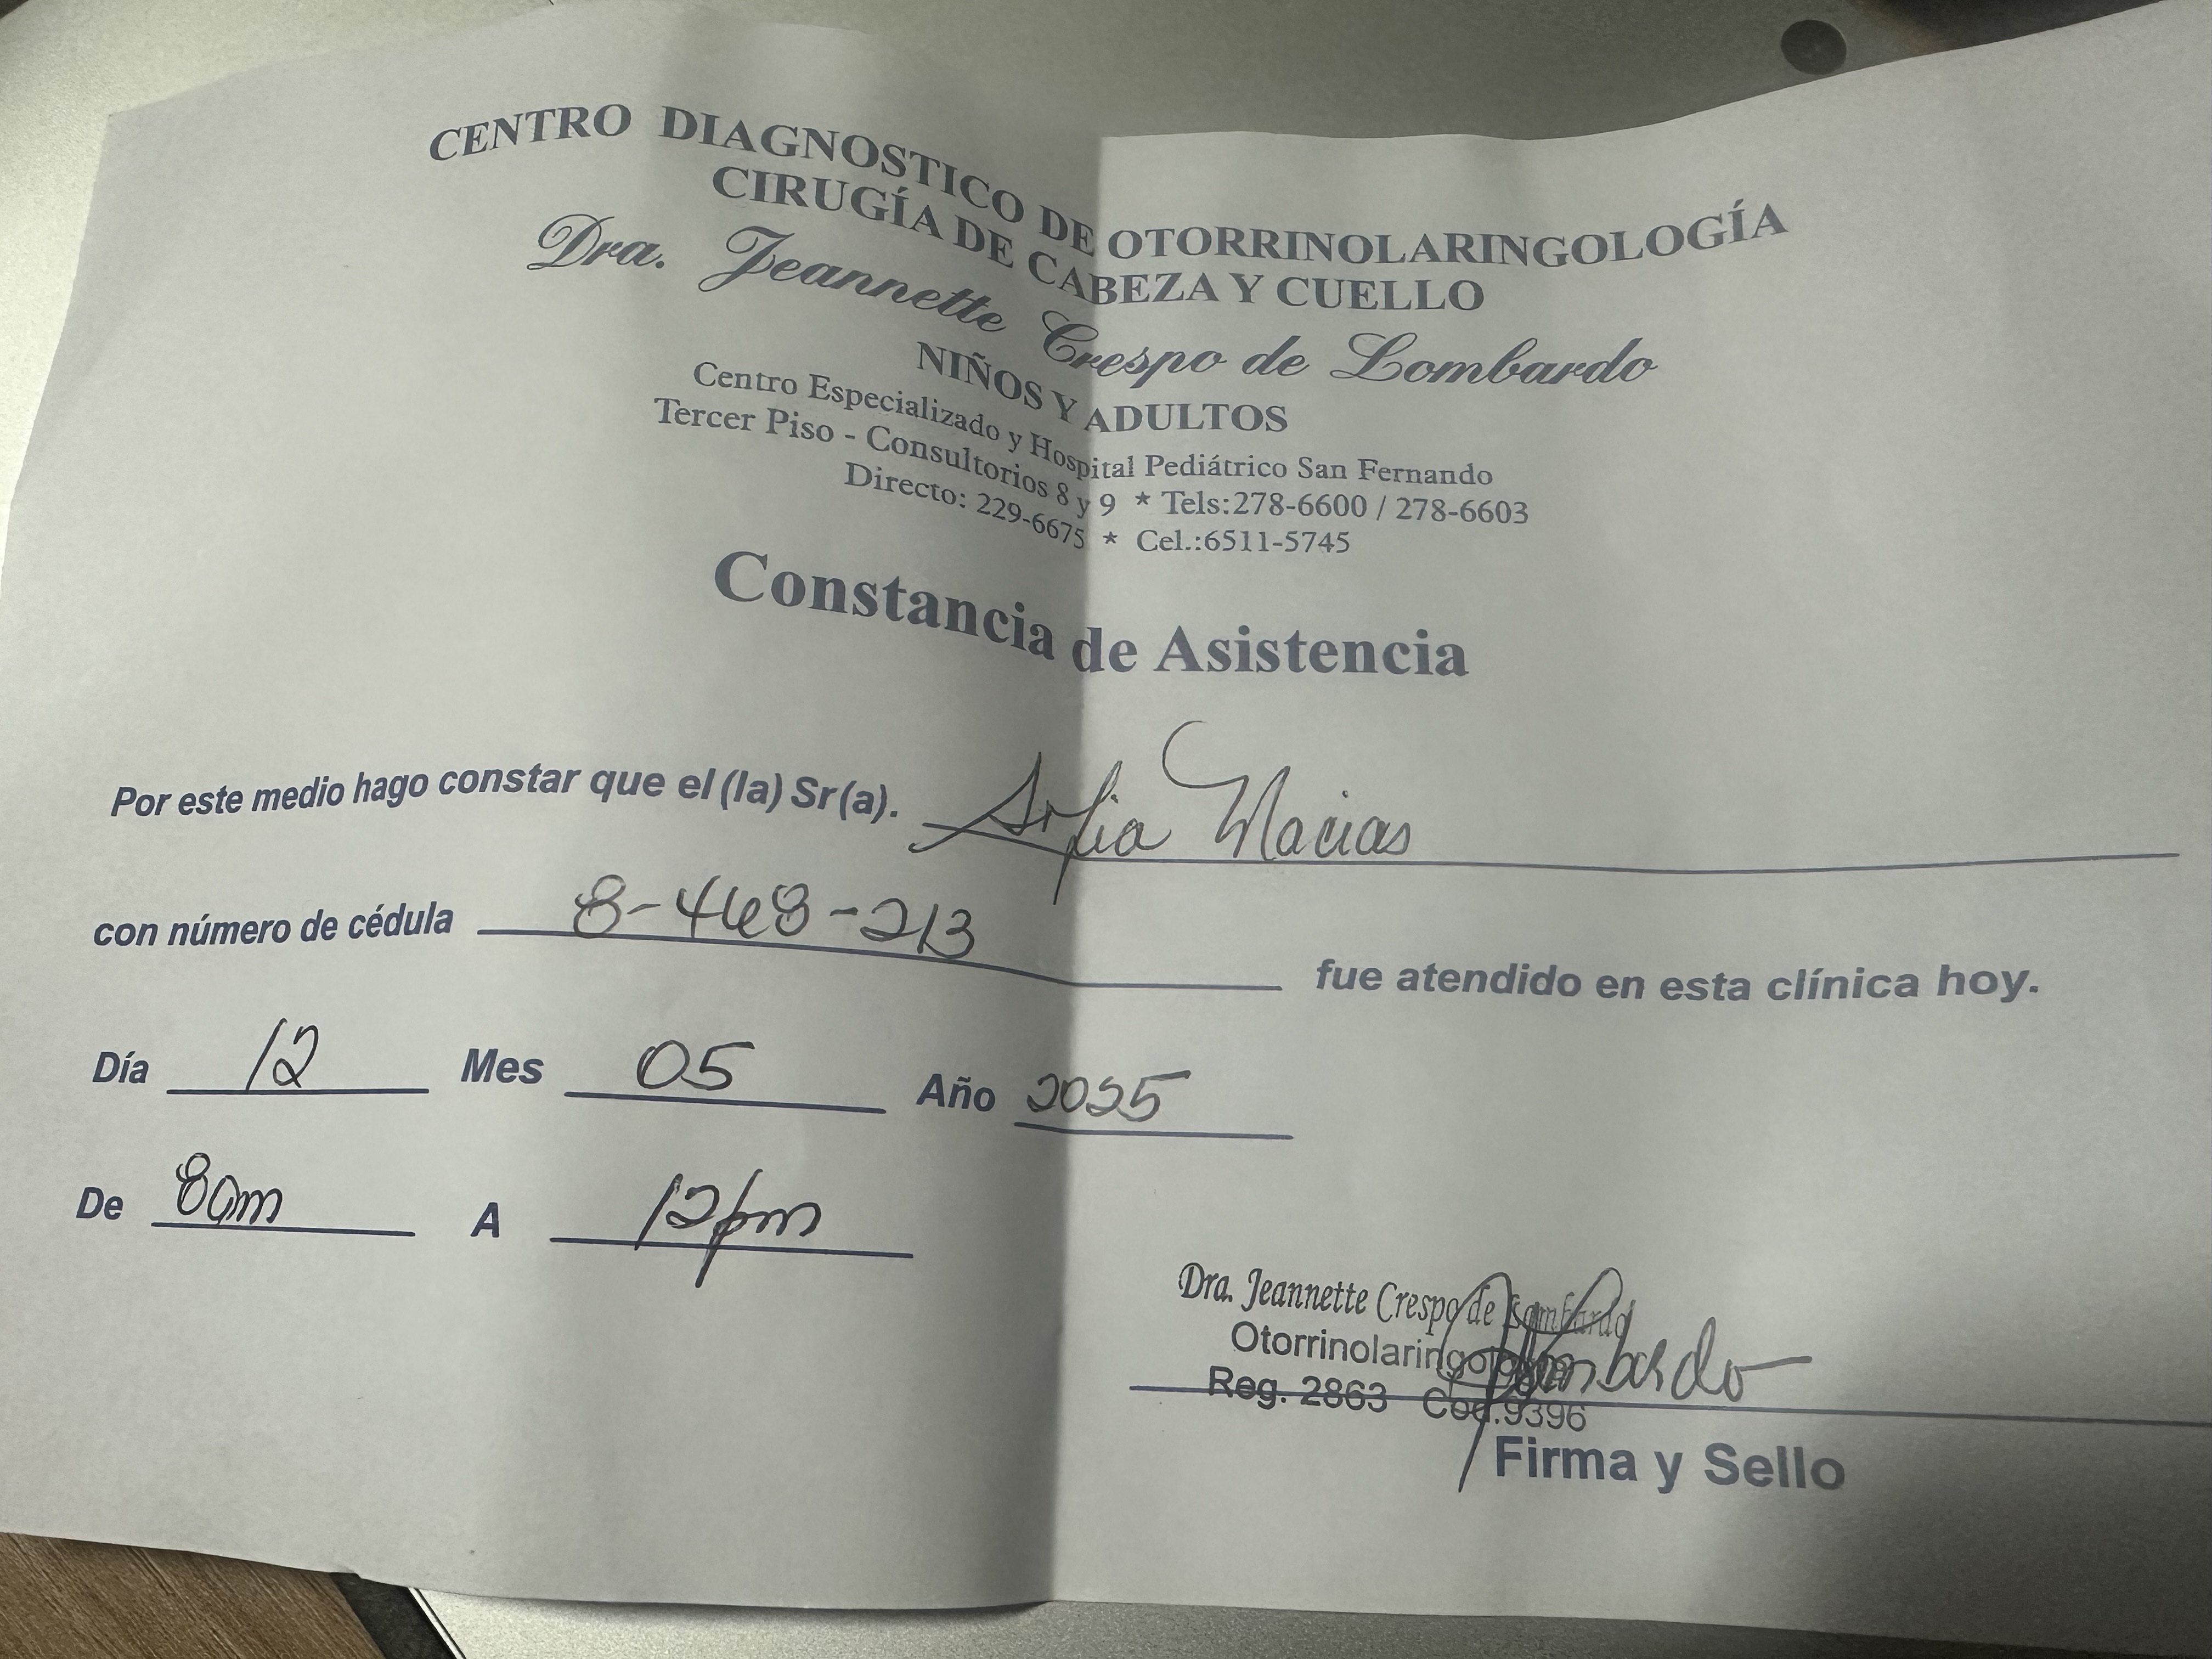 CENTRO DIAGNOSTICO DE OTORRINOLARINGOLOGÍA
CIRUGÍA DE CABEZA Y CUELLO
Dra. Jeannette Crespo de Lombardo
NIÑOS Y ADULTOS
Centro Especializado y Hospital Pediátrico San Fernando
Tercer Piso - Consultorios 8 y 9 * Tels:278-6600 / 278-6603
Directo: 229-6675 * Cel.:6511-5745
Constancia de Asistencia
Por este medio hago constar que el (la) Sr(a). Macias
con número de cédula 8-468-213 fue atendido en esta clínica hoy.
Día 12 Mes 05 Año 2025
De 8am A 12pm
Dra. Jeannette Crespo de Lombardo
Otorrinolaringología
Reg. 2863 Cod.9396
Firma y Sello